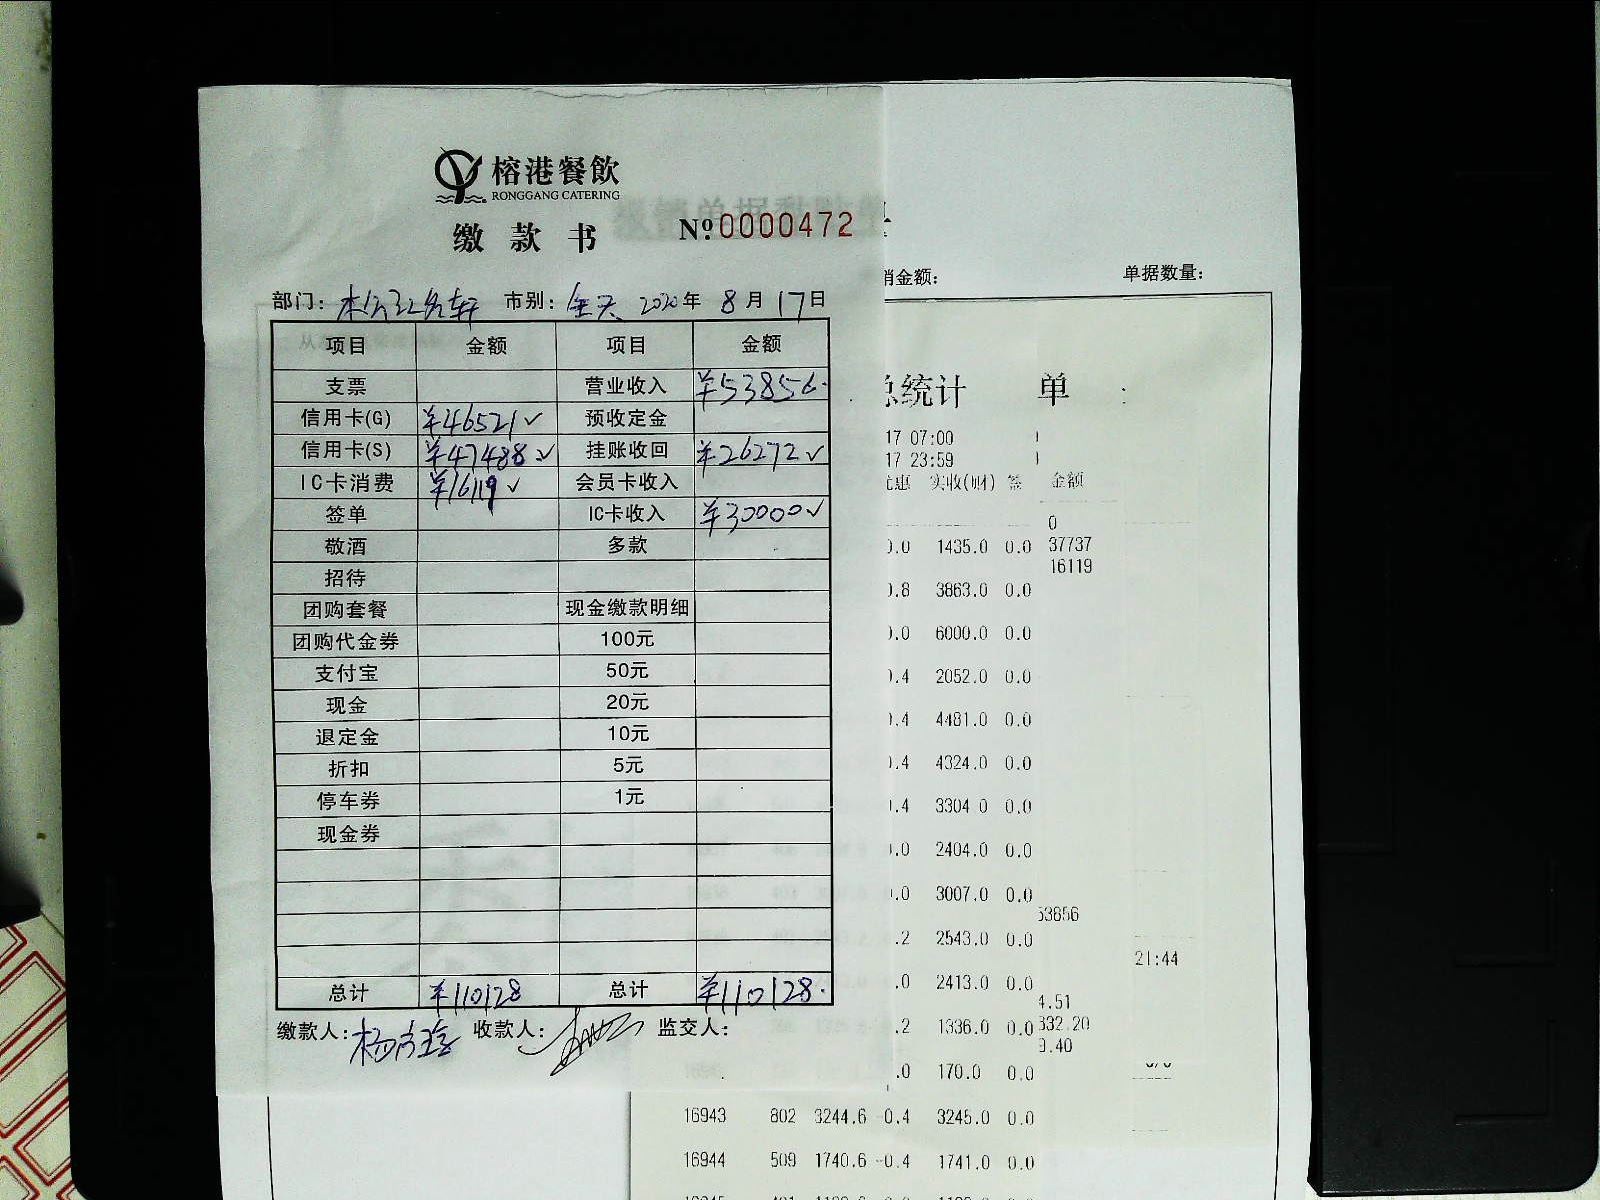 榕港餐飲
RONGGANG CATERING
缴款书 №0000472
销金额： 单据数量：
部门： 市别：全天 2020年 8月 17日
项目 金额 项目 金额
支票 营业收入 ¥53856.
信用卡(G) ¥46521✓ 预收定金
信用卡(S) ¥47488✓ 挂账收回 ¥26272✓
IC卡消费 ¥16119✓ 会员卡收入
签单 IC卡收入 ¥30000✓
敬酒 多款
招待
团购套餐 现金缴款明细
团购代金券 100元
支付宝 50元
现金 20元
退定金 10元
折扣 5元
停车券 1元
现金券
总计 ¥110128 总计 ¥110128.
缴款人： 收款人： 监交人：
总统计 单 :
17 07:00
17 23:59
优惠 实收(财) 签 金额
0
.0 1435.0 0.0 37737
16119
.8 3863.0 0.0
.0 6000.0 0.0
.4 2052.0 0.0
.4 4481.0 0.0
.4 4324.0 0.0
.4 3304.0 0.0
.0 2404.0 0.0
.0 3007.0 0.0
53856
.2 2543.0 0.0
21:44
.0 2413.0 0.0
4.51
.2 1336.0 0.0 332.20
9.40
.0 170.0 0.0
16943 802 3244.6 -0.4 3245.0 0.0
16944 509 1740.6 -0.4 1741.0 0.0